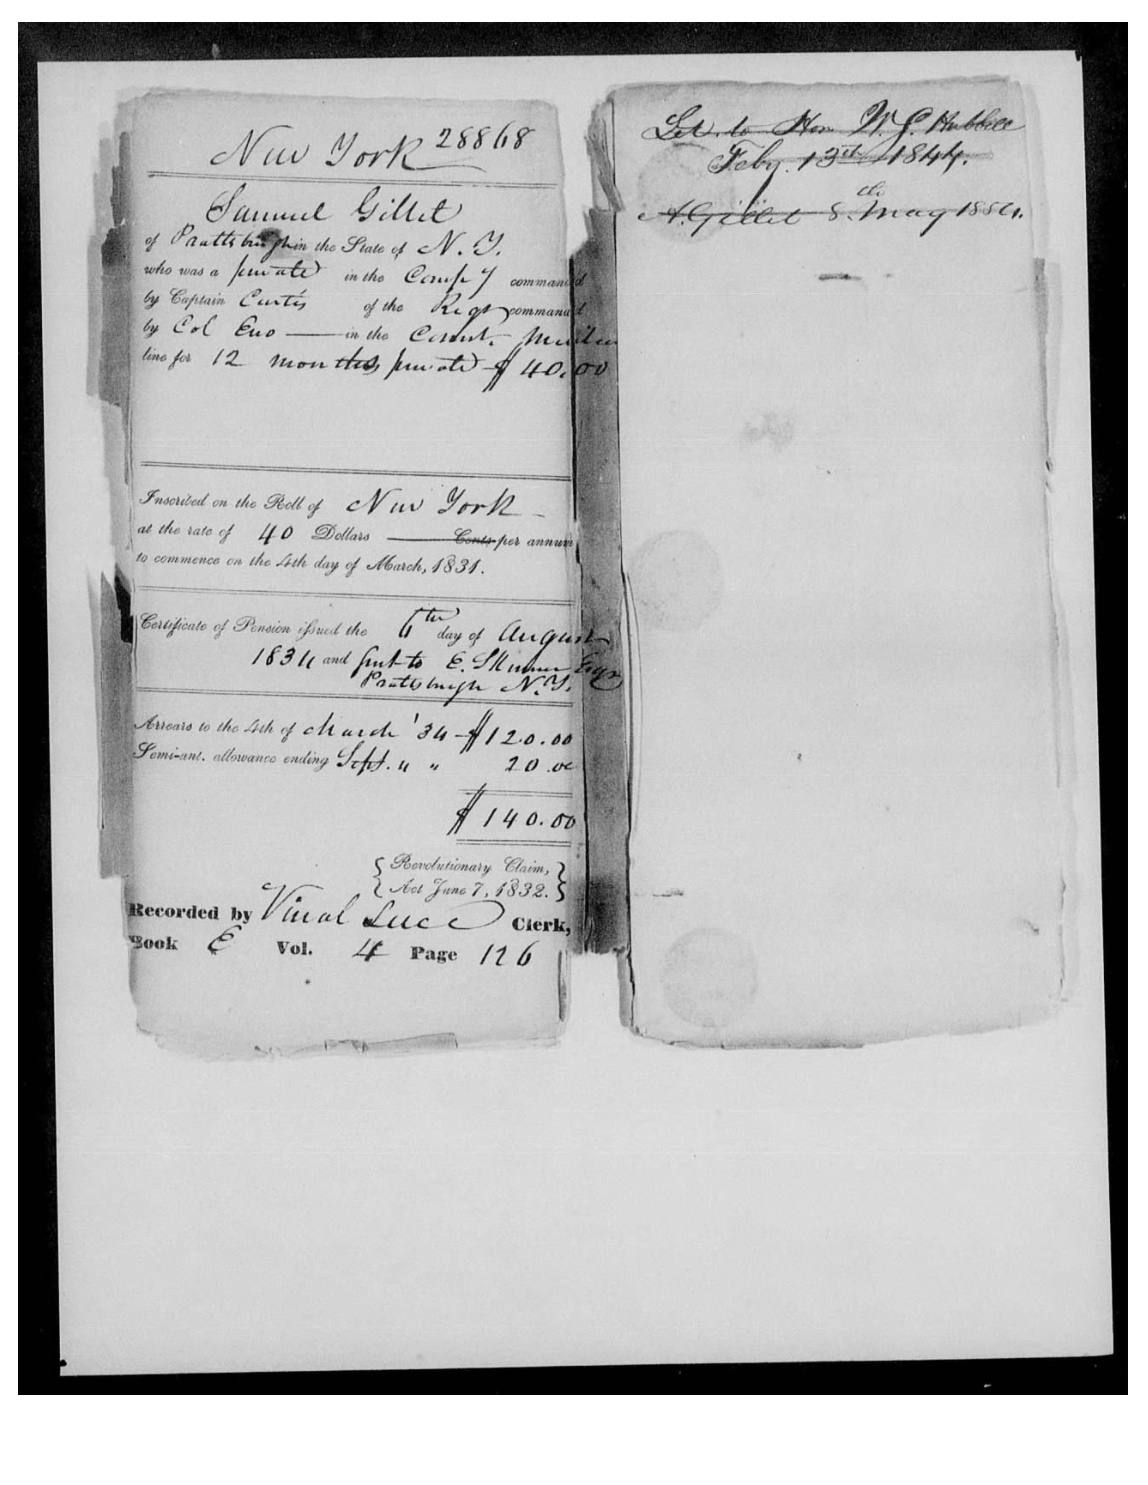 New York 28868
Samuel Gillet
of Prattsburgh in the State of N. Y.
who was a private in the Compy commanded
by Captain Curtis of the Regt commanded
by Col Eno in the Connt.
line for 12 months private $40.00
Inscribed on the Roll of New York
at the rate of 40 Dollars Cents per annum
to commence on the 4th day of March, 1831.
Certificate of Pension issued the 6th day of August
1834 and sent to E. Skinner Esqr
Prattsburgh N.Y.
Arrears to the 4th of March '34 $120.00
Semi-anl. allowance ending Sept. " " 20.00
$140.00
Revolutionary Claim,
Act June 7, 1832.
Recorded by Vinal Luce Clerk,
Book E Vol. 4 Page 126
Let. to Hon W. S. Hubbell
Feby. 13th 1844.
do
A. Gillet 8. May 1854.